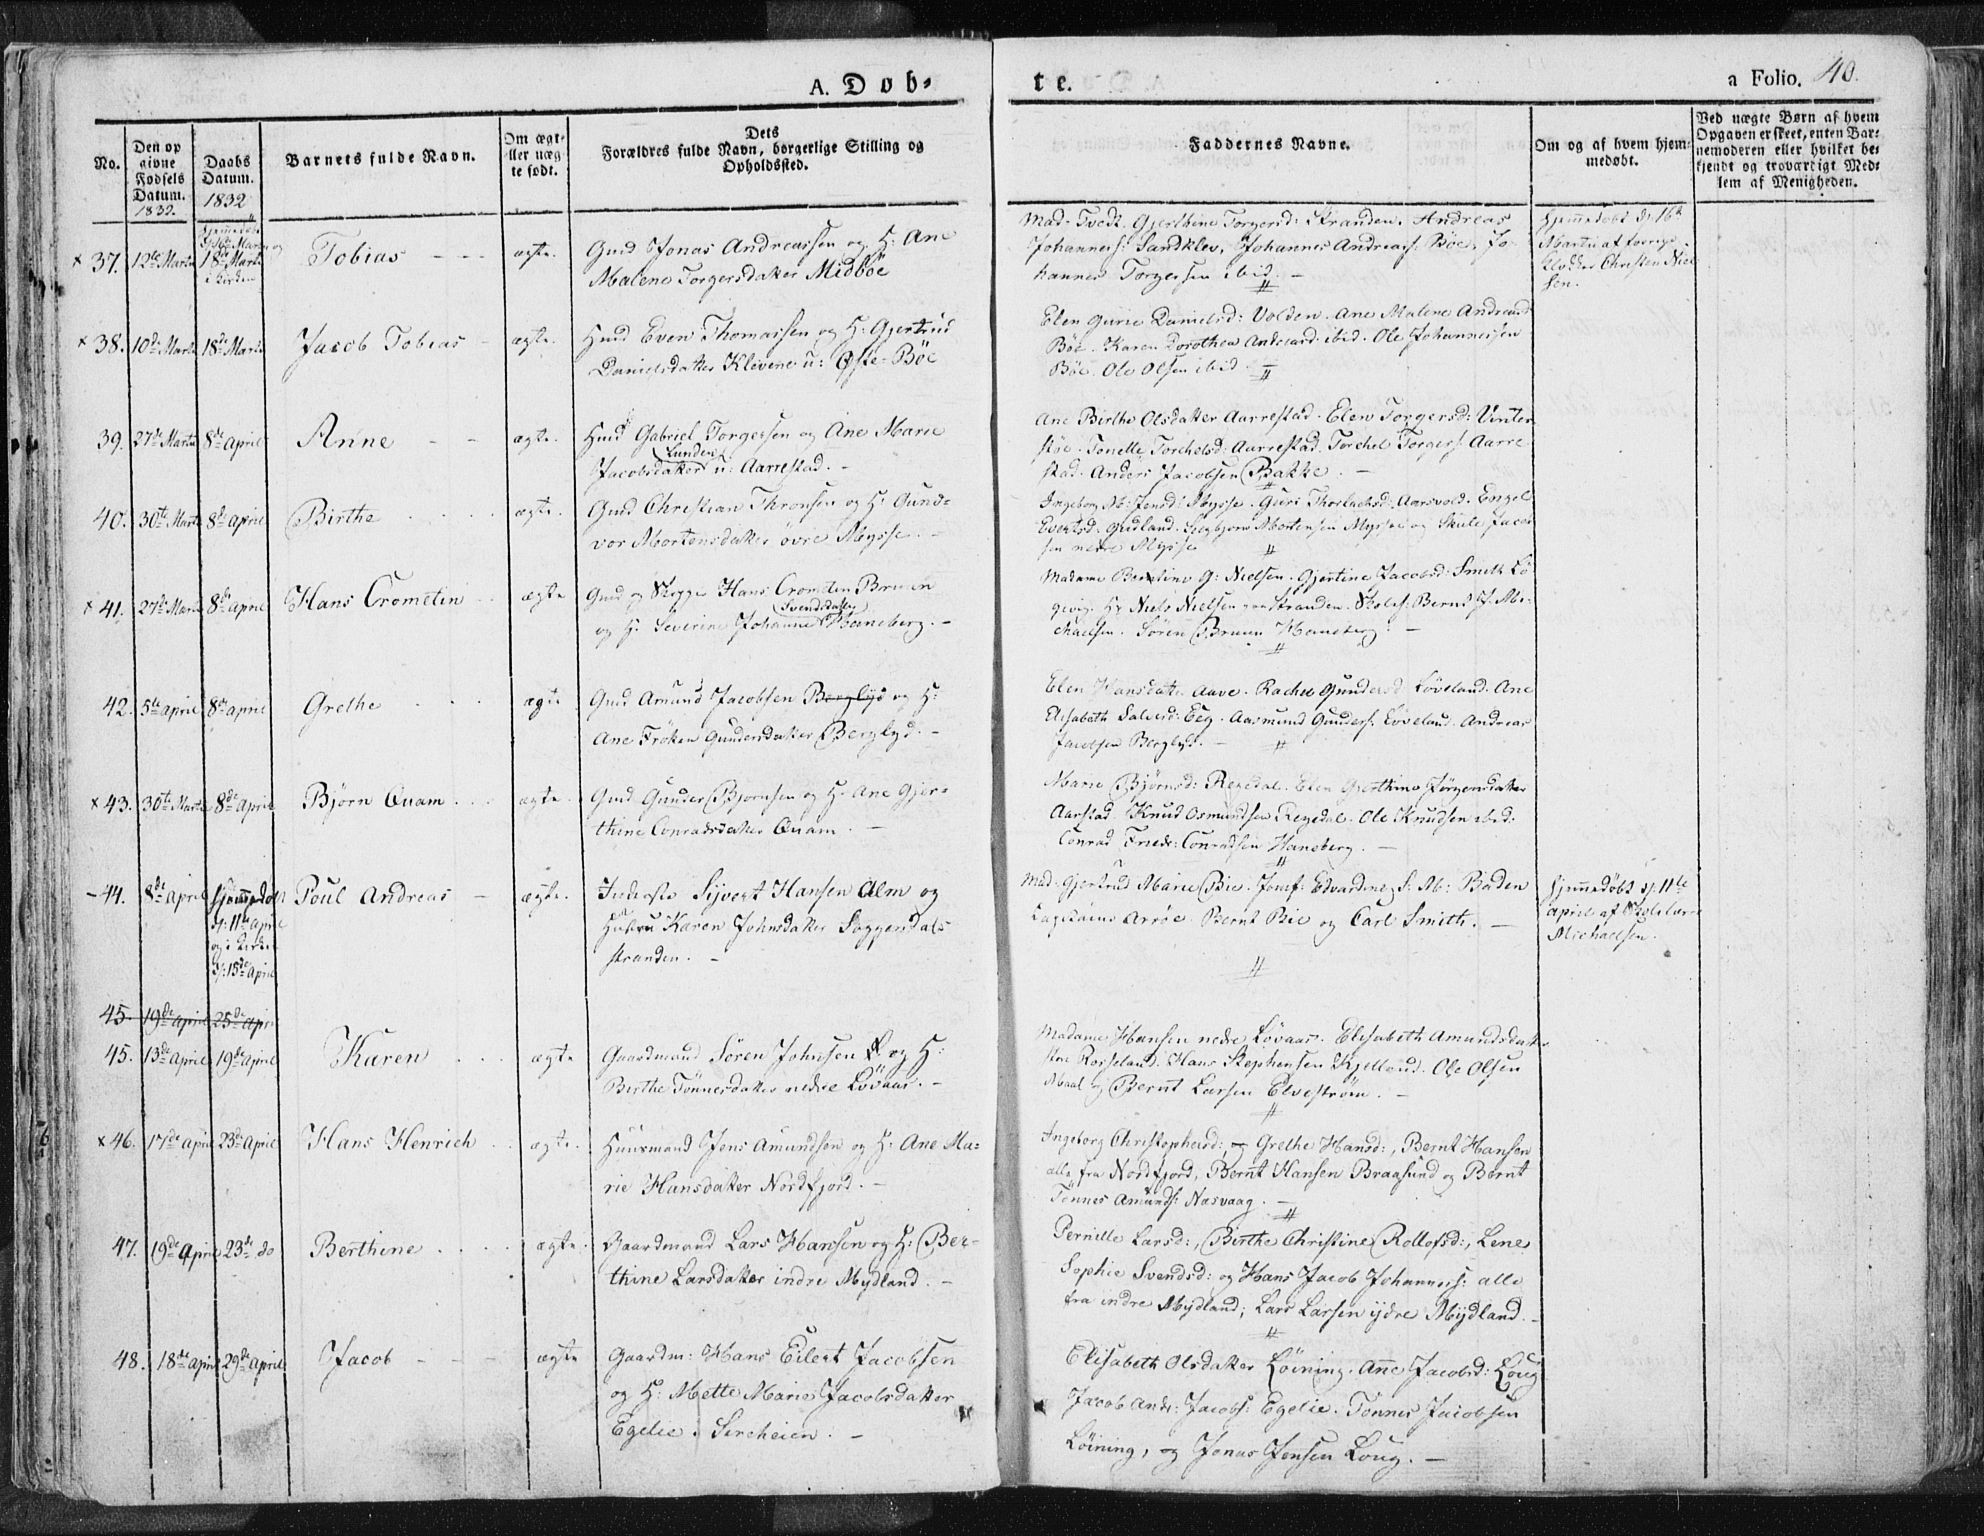 A. Døb-
te.
a Folio. 40.
No.
Den op
givne
Fødsels
Datum.
1832.
Daabs
Datum.
1832
Barnets fulde Navn.
Om ægt-
ller næg
te født.
Dets
Forældres fulde Navn, borgerlige Stilling og
Opholdssted.
Faddernes Navne.
Om og af hvem hjem-
medøbt.
Ved nægte Børn af hvem
Opgaven er skeet, enten Bar-
nemoderen eller hvilket be-
kjendt og troværdigt Med-
lem af Menigheden.
× 37. 12te Martii
18de Martii
i Kirken
Tobias
ægte.
Gmd Jonas Andreassen og H: Ane
Malene Torgersdatter Midböe
Mad. Tvedt. Gjerthine Torgersd: Stranden. Andreas
Johanness: Sandklev, Johannes Andreass: Böe, Jo-
hannes Torgersen ibid. -
Hjemmedöbt d: 16de
Martii af forrige
Klokker Christen Niel
sen.
× 38. 10de Martii 18de Martii Jacob Tobias - ægte.
Hmd Even Thomassen og H: Gjertrud
Danielsdatter Klevene u: Öste-Böe
Elen Gurie Danielsd: Volden. Ane Malene Andreasd
Böe. Karen Dorothea Andreasd: ibid. Ole Johannessen
Böe. Ole Olsen ibid.
39. 27de Martii 8de April Anne - - ægte.
Hmd Gabriel Torgersen og Ane Marie
Lunden
Jacobsdatter u: Aarrestad. -
Ane Birthe Olsdatter Aarrestad. Elen Torgersd: Vinter
stöe. Tonelle Torchelsd: Aarrestad. Torchel Torgers: Aarre
stad. Anders Jacobsen Bakke. -
40. 30te Martii 8de April Birthe ægte.
Gmd Christian Thronsen og H: Gund-
vor Mortensdatter övre Mysse. -
Ingeborg M: Jensd: Mysse. Guri Thorlachsd: Aarsvold. Engel
Evertsd. Gudland. Segbjörn Mortensen Mysse og Skule Jacob
sen nedre Mysse
× 41. 27de Martii 8de April Hans Crometin ægte
Gmd og Skipper Hans Crometin Bruun
Svendsdatter
og H: Severine Johanne Haneberg. -
Madame Berntine G: Nielsen. Gjertine Jacobsd: Smith Lö
gevig. Hr Niels Nielsen Stranden. Skolel: Bernt J. Mi-
chaelsen. Sören Bruun Haneberg. -
42. 5te April 8de April Grethe ægte
Gmd Amund Jacobsen Berglyd og H:
Ane Fröken Gundersdatter Berglyd. -
Elen Hansdatter Aave. Rachel Gundersd Löveland. Ane
Elisabeth Salvesd: Eeg. Aasmund Gunders: Löveland. Andreas
Jacobsen Berglyd. -
× 43. 30te Martii 8de April Björn Qvam ægte.
Gmd Gunder Bjornsen og H: Ane Gjer-
thine Conradsdatter Qvam. -
Marie Björnsd: Regedal. Elen Gjerthine Jörgensdatter
Aarstad. Knud Osmundsen Regedal. Ole Knudsen ibid.
Conrad Friedr: Conradsen Haneberg. -
- 44. 8de April
Hjemmedöbt
d: 11te April
og i Kirken
d: 15de April
Poul Andreas - ægte.
Inderste Sijvert Hansen Alm og
Hustru Karen Johnsdatter Soggendals
stranden. -
Mad. Gjertrud Marie Bie. Jomf: Edvardine S: M: Baden
Bernt Bie og Carl Smith. -
Hjemmedöbt d: 11te
April af Skolelærer
Michaelsen.
45. 19de April 25de Apri
45. 13de April 19de April Karen ægte
Gaardmand Sören Johnsen og H:
Birthe Tönnesdatter nedre Lövaas. -
Madame Hansen nedre Lövaas. Elisabeth Amundsdatter
Rosseland. Hans Stephensen Kjelland. Ole Olsen
Maal og Bernt Larsen Elveström. -
× 46. 17de April 23de April Hans Henrich ægte.
Huusmand Jens Amundsen og H: Ane Ma-
rie Hansdatter Nordfjord. -
Ingeborg Christophersd: og Grethe Hansd:, Bernt Hansen
alle fra Nordfjord, Bernt Hansen Braasund og Bernt
Tönnes Amunds: Nasvaag. -
47. 19de April 23de do Berthine ægte.
Gaardmand Lars Hansen og H: Ber-
thine Larsdatter indre Mydland. -
Pernille Larsd:, Birthe Christine Rollofsd:, Lene
Sophie Svendsd: og Hans Jacob Johanness: alle
fra indre Mydland; Lars Larsen ijdre Mijdland. -
48. 18de April 29de April Jacob - - - ægte
Gaardm: Hans Eilert Jacobsen
og H: Mette Marie Jacobsdatter
Egelie i Sireheien. -
Elisabeth Olsdatter Löining. Ane Jacobsd: Loug
Jacob Andr: Jacobs: Egelie. Tönnes Jacobsen
Löining, og Jonas Jensen Loug. -